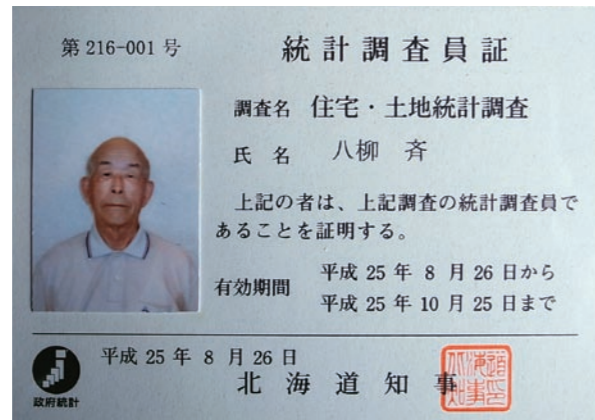 第 216-001 号
統計調査員証
調査名 住宅・土地統計調査
氏 名 八柳 斉
上記の者は、上記調査の統計調査員で
あることを証明する。
有効期間 平成 25 年 8 月 26 日から
平成 25 年 10 月 25 日まで
平成 25 年 8 月 26 日
北海道知事
政府統計